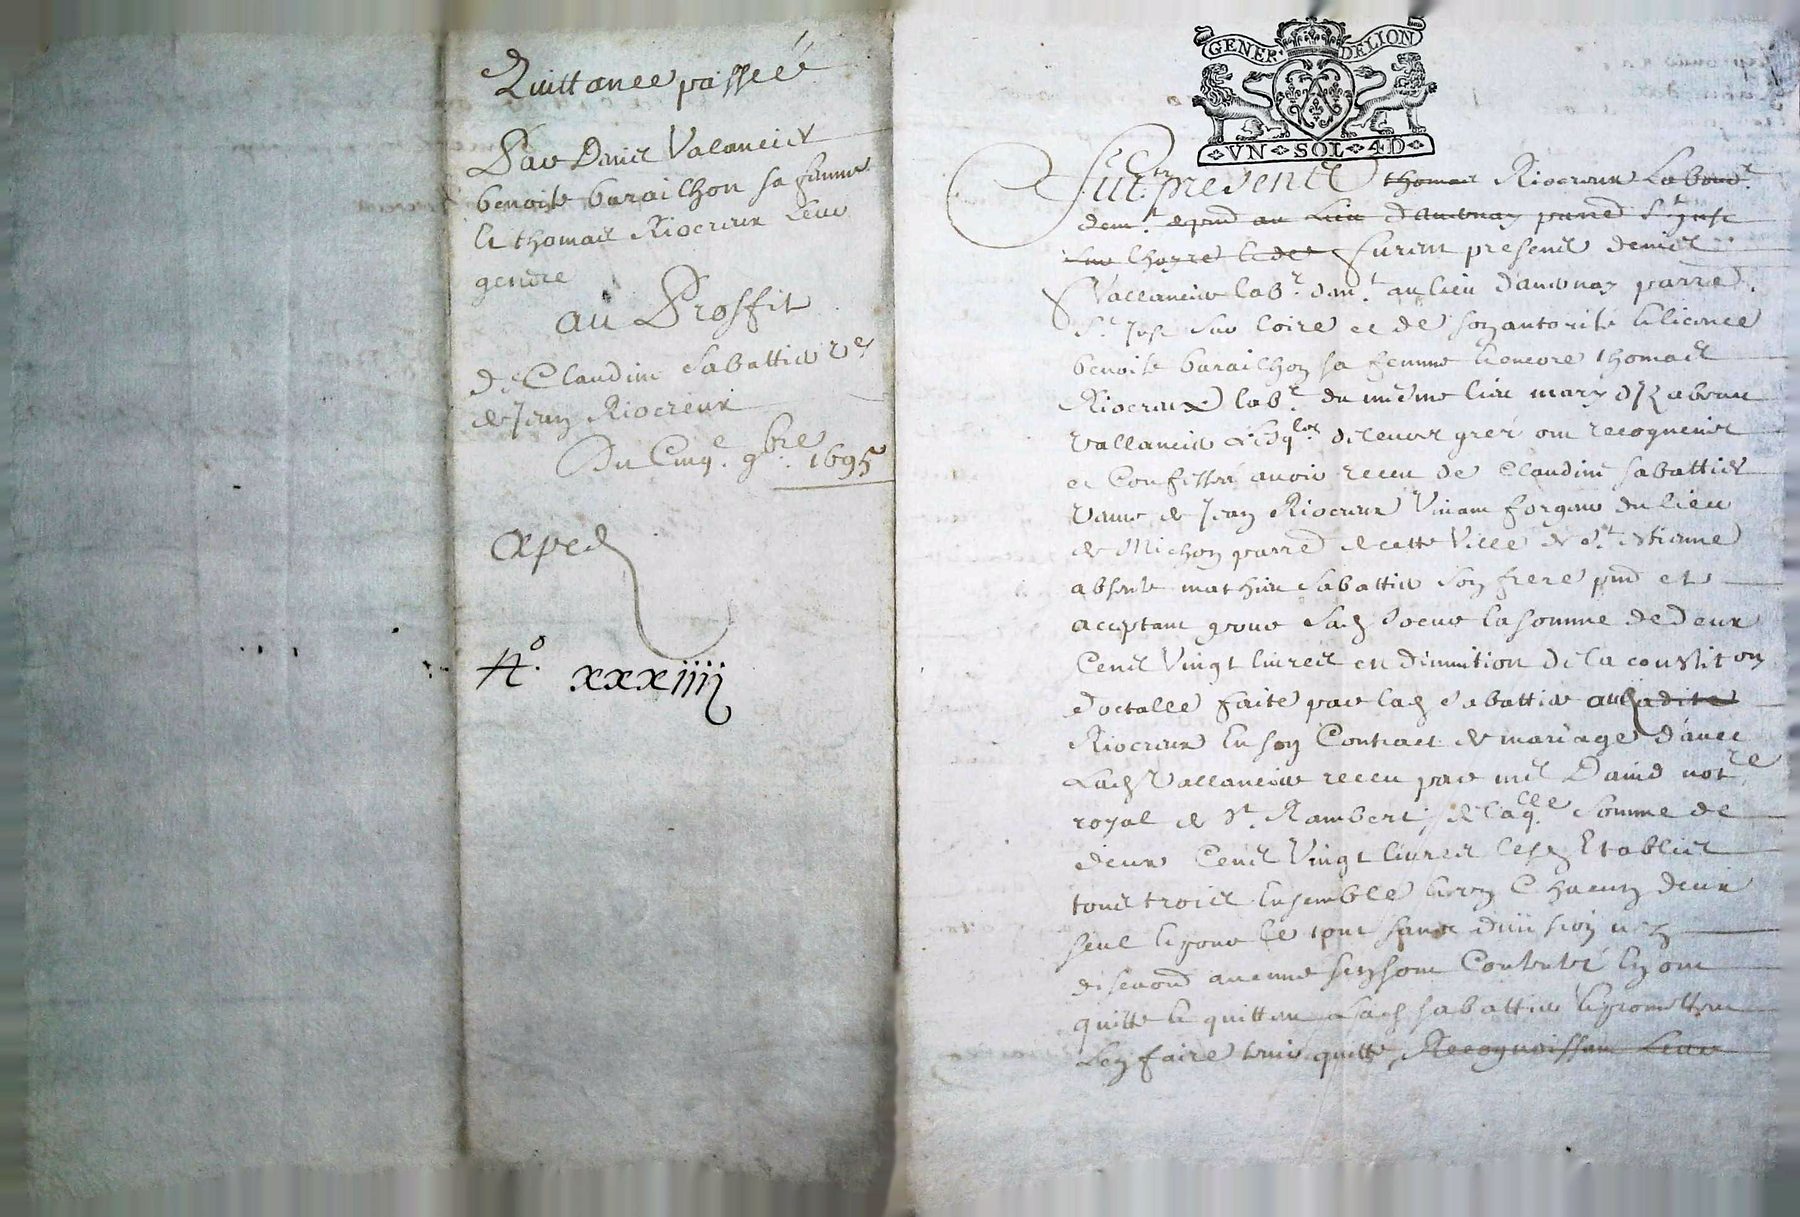 Quittance passeé
Par Denis Valancier
benoite barailhon sa femme
& thomas Riocreux leur
gendre
au Proffit
De Claudine Sabattier v.e
de Jean Riocreux
Du Cinq.e 9.bre 1695
exped
N.o xxxiiij
GENER. DELION
VN SOL 4D
Fut present thomas Riocreux Labour.r
dem.t a pnd au Lieu daunay parred S.t Just
sur Loyre ledes furent presents denis
Vallancier lab.r dem.t au lieu daunay parred.
S.t Just sur loire et de son autorité & licence
benoite barailhon sa femme & encore thomas
Riocreux lab.r du mesme lieu mary d'Izabeau
vallancier Lesq.els de leur gré ont recogneus
et Confessé avoir receu de Claudine Sabattier
veuve de Jean Riocreux vivant forgeur du lieu
de Michon parred de cette Ville de S.t Estienne
absente mathieu Sabattier son frere pnd et
acceptant pour lad soeur la somme de deux
Cents Vingt livres en diminution de la constit.on
doctalle faite par lad Sabattier aud ladite
Riocreux en son Contract de mariage d'avec
Lad Vallancier receu par m.e David not.re
royal de S.t Rambert, de laq.elle somme de
deux Cents Vingt livres lesd Etablis
tous trois ensemble & un Chacun deux
seul & pour le tout sans division ny
discution aucune sen sont Contentés en ont
quitte & quittent Lad Sabattier & promettent
Len faire tenir quitte, Recognoissant Leur